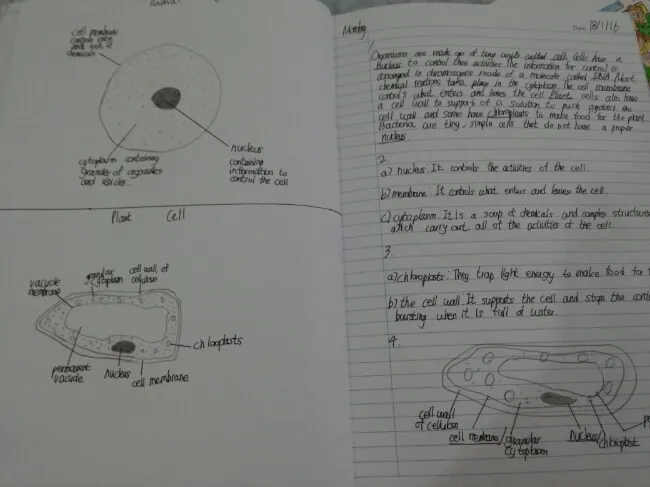 animal
cell membrane
controls entry
and exit of
chemicals
nucleus
containing
information to
control the cell
cytoplasm containing
granules of organelles
and
Plant Cell
vacuole
membrane
granular
cytoplasm
cell wall of
cellulose
chloroplasts
permanent
vacuole
nucleus
cell membrane
Monday
Date: 18/1/16
1.
Organisms are made up of tiny units called cell. Cells have a
nucleus to control their activities. The information for control is
arranged in chromosomes made of a molecule called DNA. Most
chemical reactions take place in the cytoplasm. The cell membrane
controls what enters and leaves the cell. Plant cells also have
a cell wall to support of a solution to push against the
cell wall and some have chloroplasts to make food for the plant.
Bacteria are tiny, simple cells that do not have a proper
nucleus.
2.
a) nucleus: It controls the activities of the cell.
b) membrane: It controls what enters and leaves the cell.
c) cytoplasm: It is a soup of chemicals and complex structures
which carry out all of the activities of the cell.
3.
a) chloroplasts: They trap light energy to make food for
b) the cell wall: It supports the cell and stops the
bursting when it is full of water.
4.
cell wall
of cellulose
cell membrane
granular
cytoplasm
nucleus
chloroplast